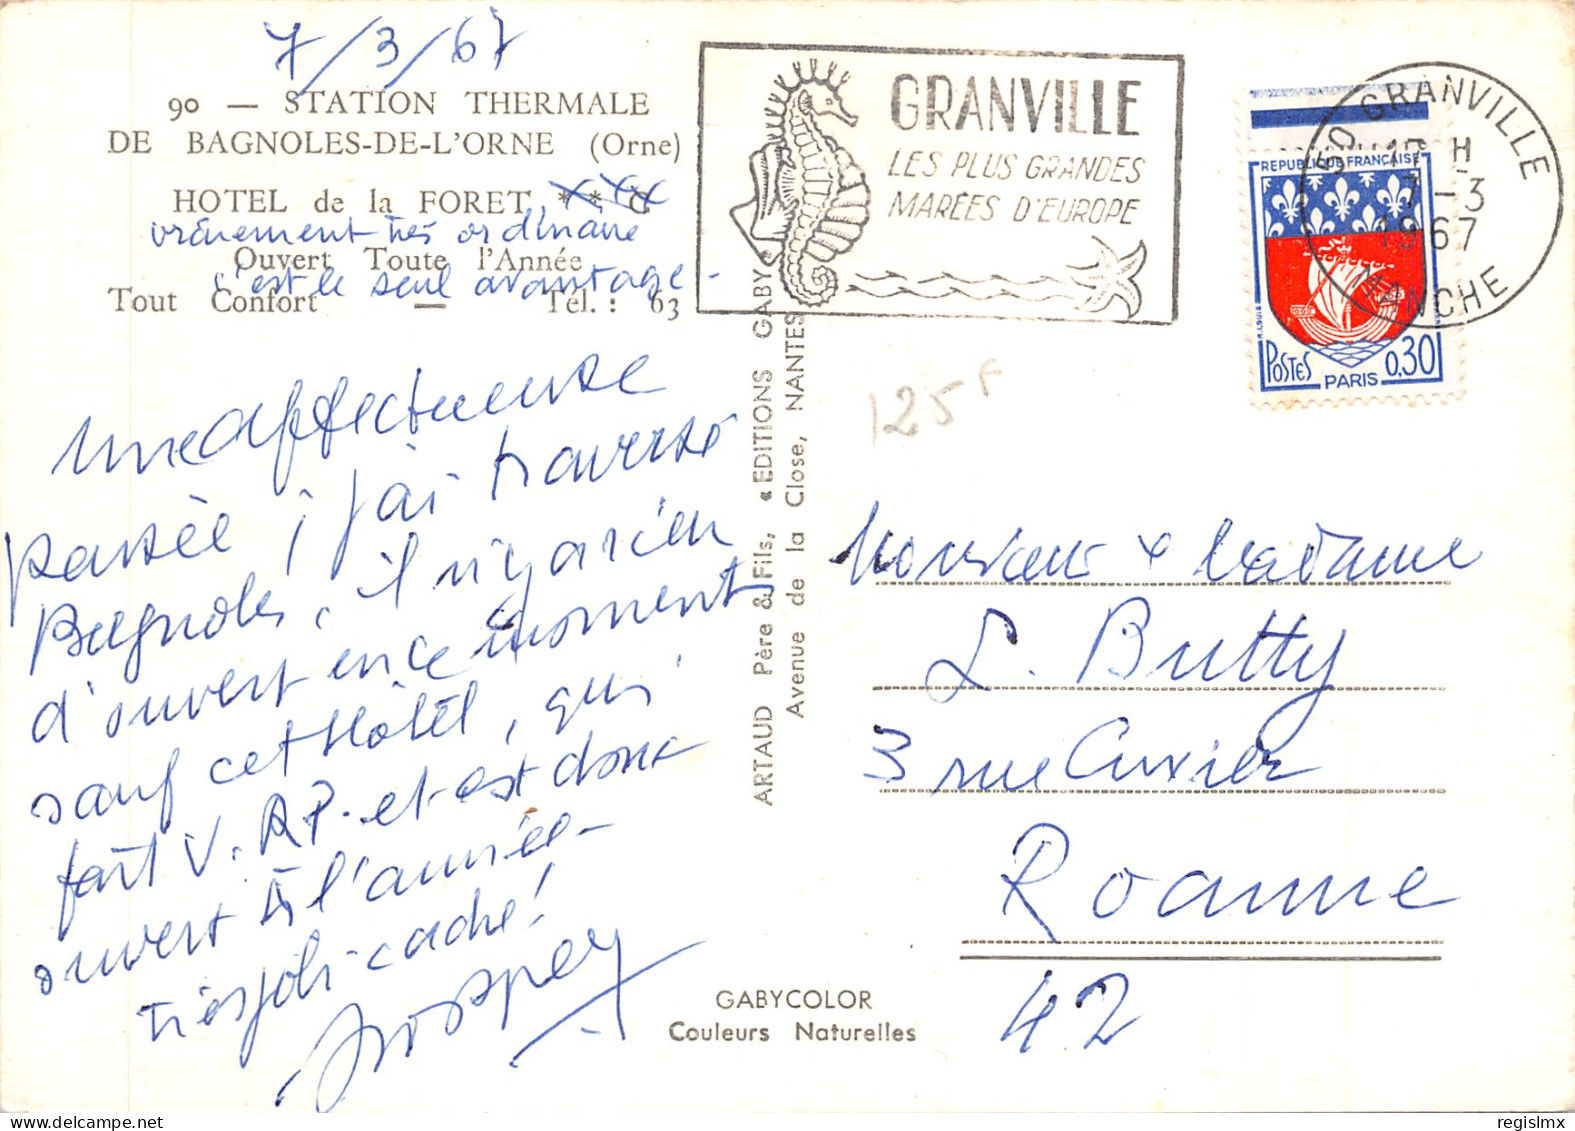 7/3/67
90 — STATION THERMALE
DE BAGNOLES-DE-L'ORNE (Orne)
HOTEL de la FORET
vraiment très ordinaire
Ouvert Toute l'Année
c'est le seul avantage -
Tout Confort — Tél. : 63
Une affectueuse
pensée ; j'ai traversé
Bagnoles, il n'y a rien
d'ouvert en ce moment
sauf cet Hôtel, qui
fait V.R.P. et est donc
ouvert à l'année -
très joli cadre !
ARTAUD Père & Fils, « EDITIONS GABY »
Avenue de la Close, NANTES
GABYCOLOR
Couleurs Naturelles
GRANVILLE
LES PLUS GRANDES
MARÉES D'EUROPE
50 GRANVILLE
17 H
7-3
1967
MANCHE
REPUBLIQUE FRANÇAISE
POSTES
PARIS
0,30
125 F
Monsieur & Madame
L. Butty
3 rue Cuvier
Roanne
42
regislmx